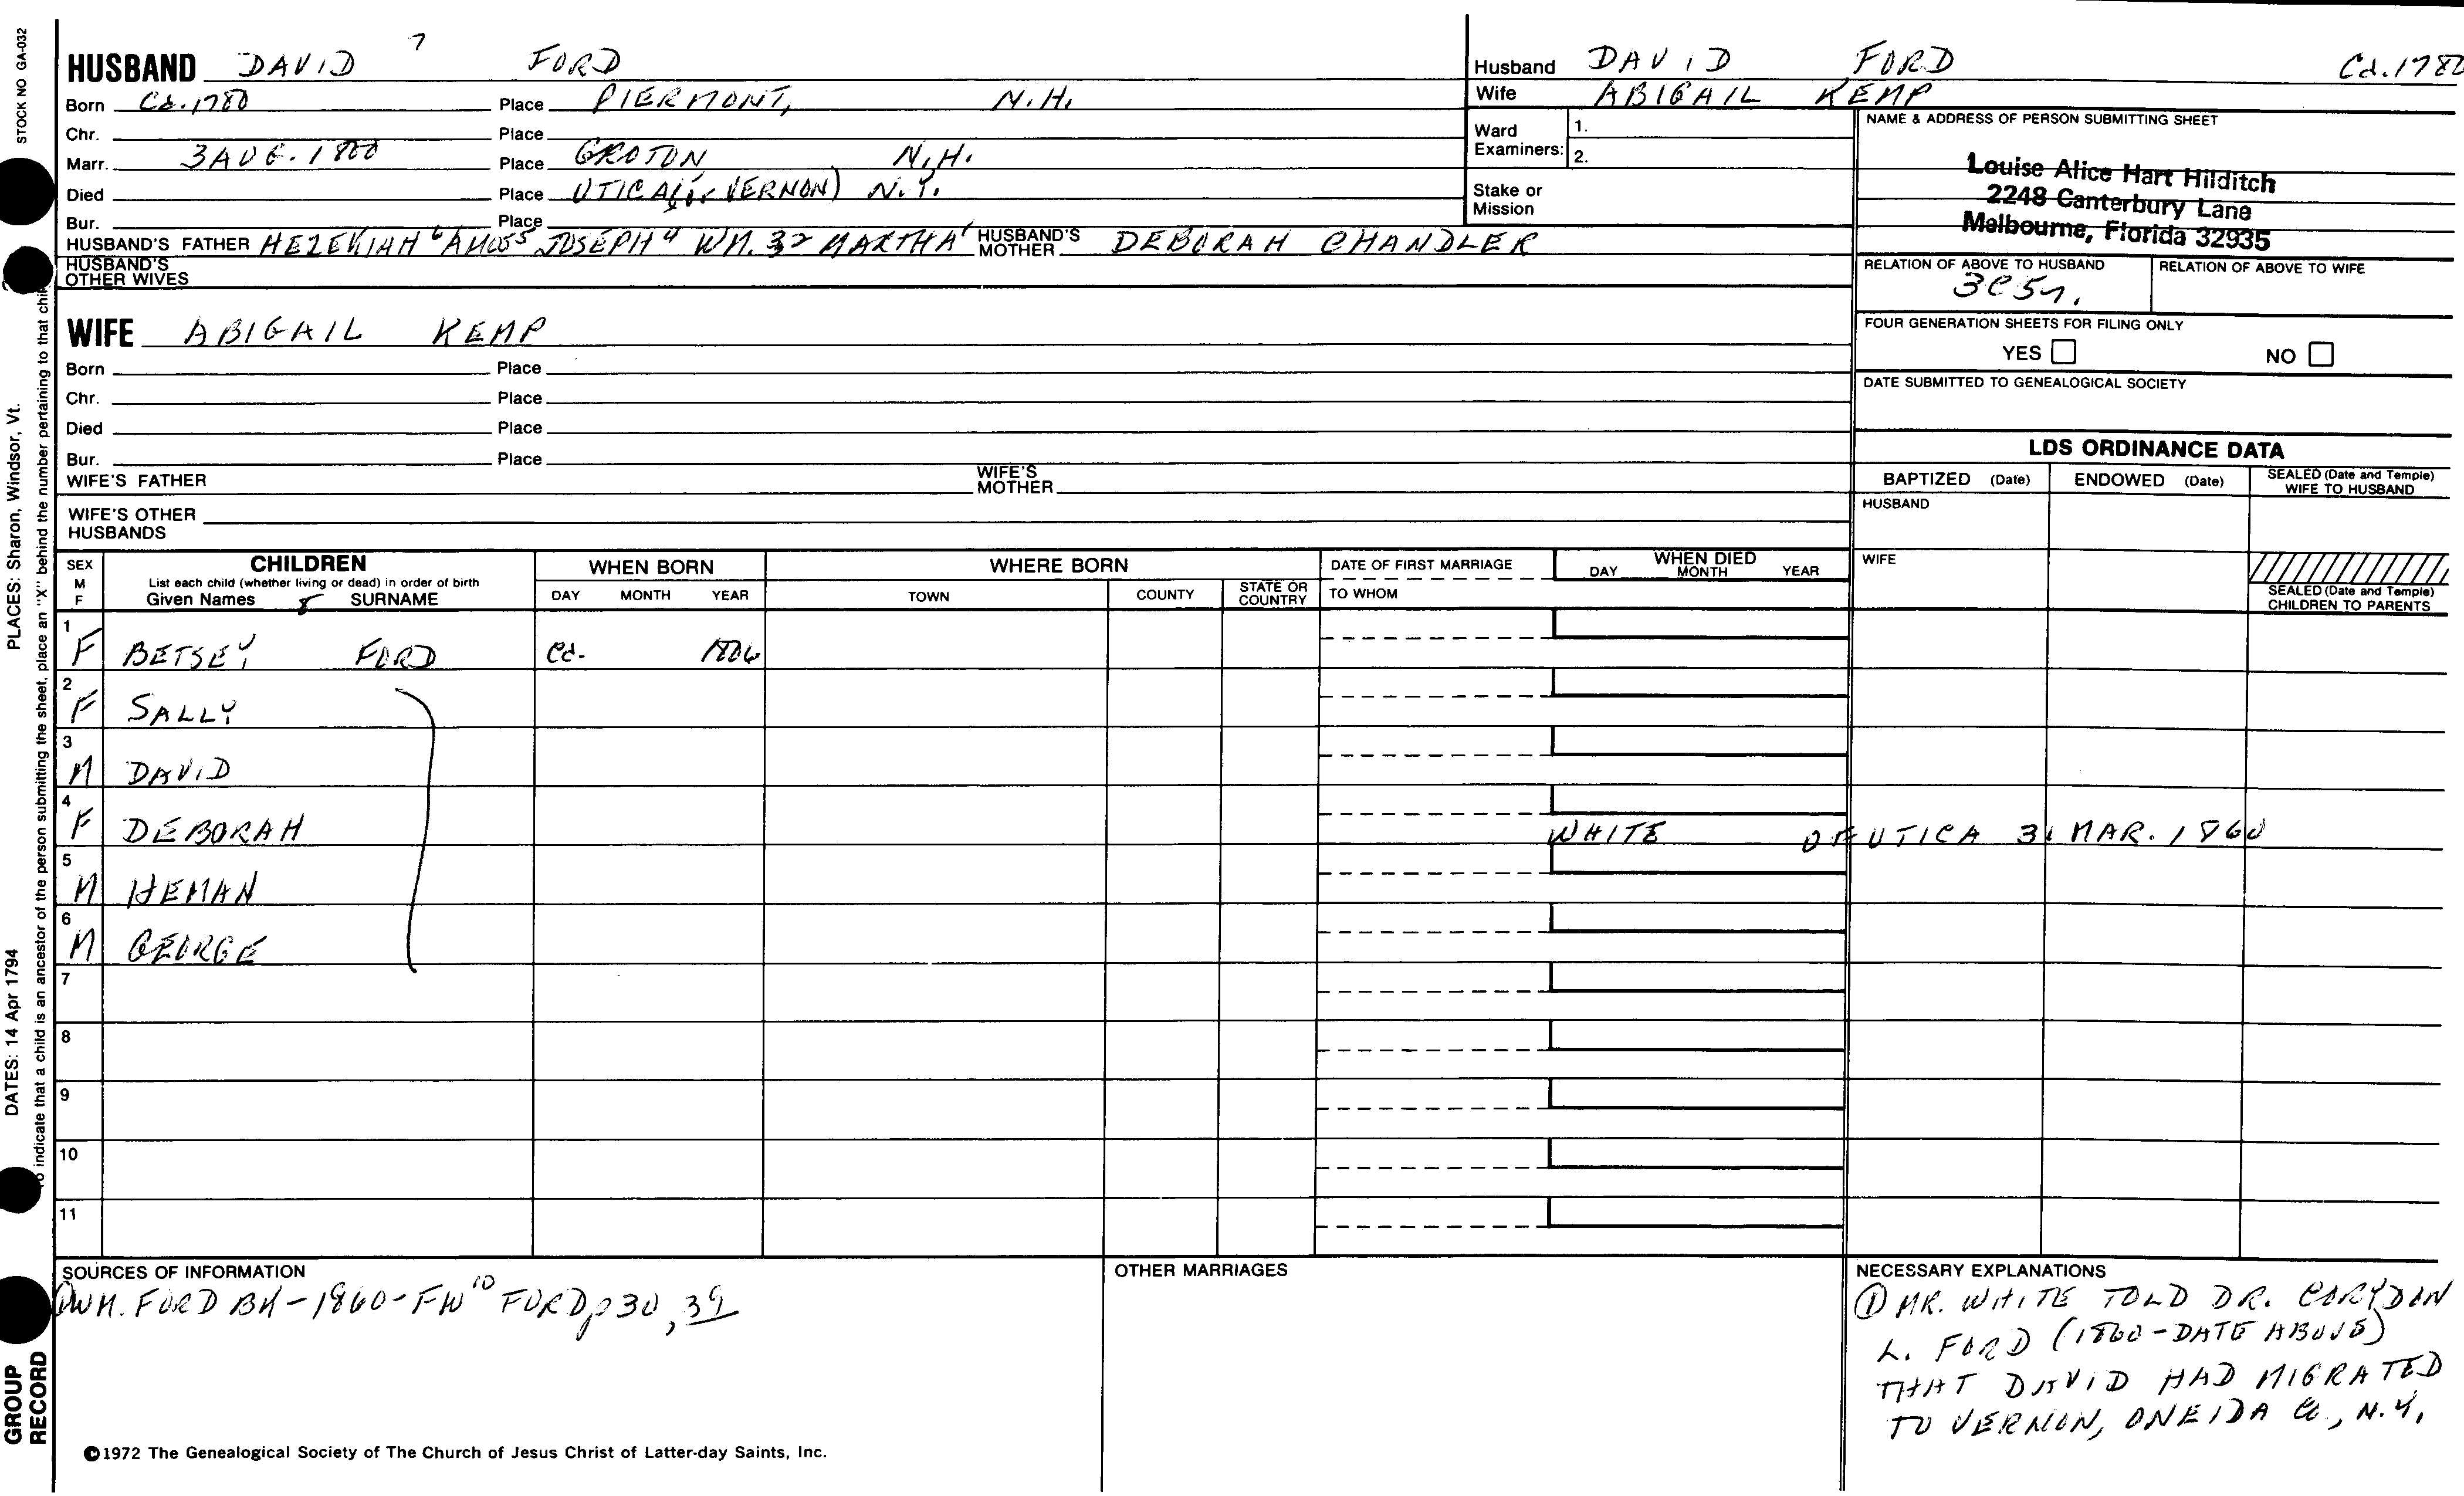 STOCK NO GA-032
PLACES: Sharon, Windsor, Vt.
DATES: 14 Apr 1794
to indicate that a child is an ancestor of the person submitting the sheet, place an "X" behind the number pertaining to that child
GROUP RECORD
HUSBAND DAVID 7 FORD
Born Ca. 1780 Place PIERMONT, N.H.
Chr. Place
Marr. 3 AUG. 1800 Place GROTON N.H.
Died Place UTICA (or VERNON) N.Y.
Bur. Place
HUSBAND'S FATHER HEZEKIAH 6 AMOS 5 JOSEPH 4 WM. 3 2 MARTHA 1 HUSBAND'S MOTHER DEBORAH CHANDLER
HUSBAND'S OTHER WIVES
WIFE ABIGAIL KEMP
Born Place
Chr. Place
Died Place
Bur. Place
WIFE'S FATHER WIFE'S MOTHER
WIFE'S OTHER HUSBANDS
Husband DAVID FORD Ca. 1780
Wife ABIGAIL KEMP
Ward Examiners: 1.
2.
Stake or Mission
NAME & ADDRESS OF PERSON SUBMITTING SHEET
Louise Alice Hart Hilditch
2248 Canterbury Lane
Melbourne, Florida 32935
RELATION OF ABOVE TO HUSBAND RELATION OF ABOVE TO WIFE
3C5r.
FOUR GENERATION SHEETS FOR FILING ONLY
YES NO
DATE SUBMITTED TO GENEALOGICAL SOCIETY
LDS ORDINANCE DATA
BAPTIZED (Date) ENDOWED (Date) SEALED (Date and Temple) WIFE TO HUSBAND
HUSBAND
WIFE
SEALED (Date and Temple) CHILDREN TO PARENTS
SEX M F
CHILDREN
List each child (whether living or dead) in order of birth
Given Names 8 SURNAME
WHEN BORN
DAY MONTH YEAR
WHERE BORN
TOWN COUNTY STATE OR COUNTRY
DATE OF FIRST MARRIAGE
TO WHOM
WHEN DIED
DAY MONTH YEAR
1 F BETSEY FORD Ca. 1806
2 F SALLY
3 M DAVID
4 F DEBORAH WHITE OF UTICA 31 MAR. 1860
5 M HEMAN
6 M GEORGE
7
8
9
10
11
SOURCES OF INFORMATION
① WM. FORD BK - 1860 - FW 10 FORD p 30, 39
OTHER MARRIAGES
NECESSARY EXPLANATIONS
① MR. WHITE TOLD DR. CORYDON
L. FORD (1860 - DATE ABOVE)
THAT DAVID HAD MIGRATED
TO VERNON, ONEIDA Co., N.Y.
©1972 The Genealogical Society of The Church of Jesus Christ of Latter-day Saints, Inc.